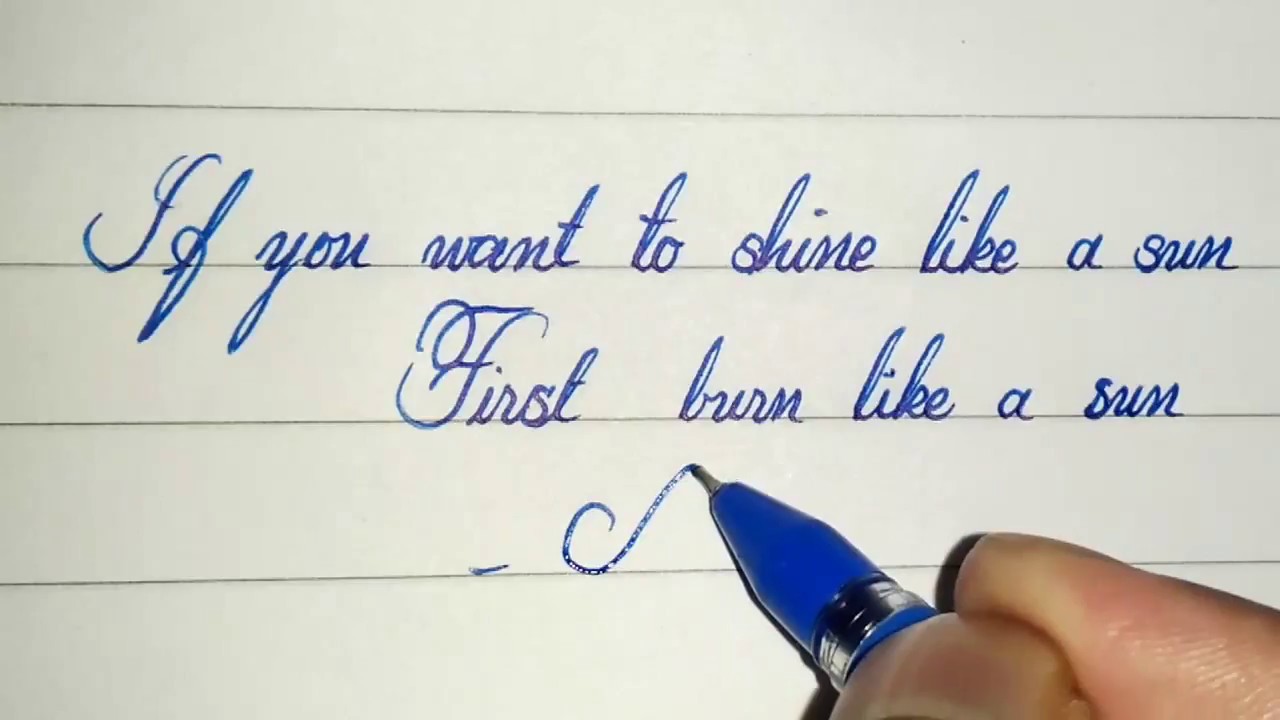 If you want to shine like a sun
First burn like a sun
-